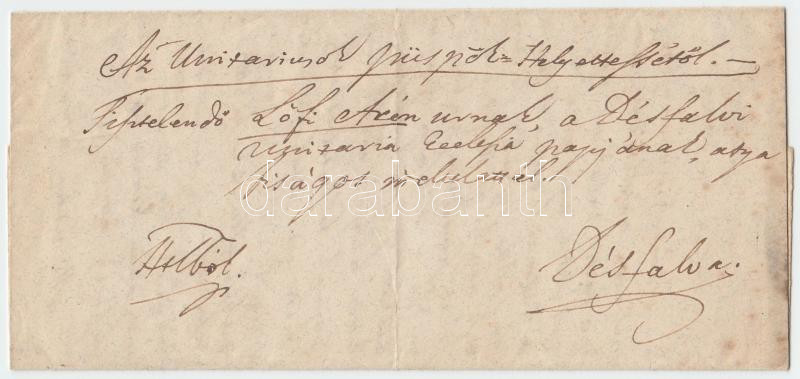 Az Unitariusok püspök=Helyettessétől.—
Tisztelendő Lőfi Áron urnak, a Désfalvi
Unitaria Ecclesia papjának, atya
fiságos indulattal.
Hclból.
Désfalva.
darabanth